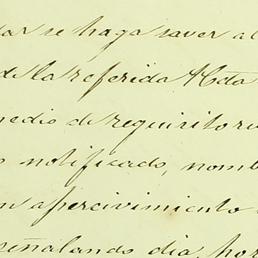 dar se haga saver al
de la referida Hda
medio de requisitori
notificado, nomb
n apercivimiento
señalando dia, hor